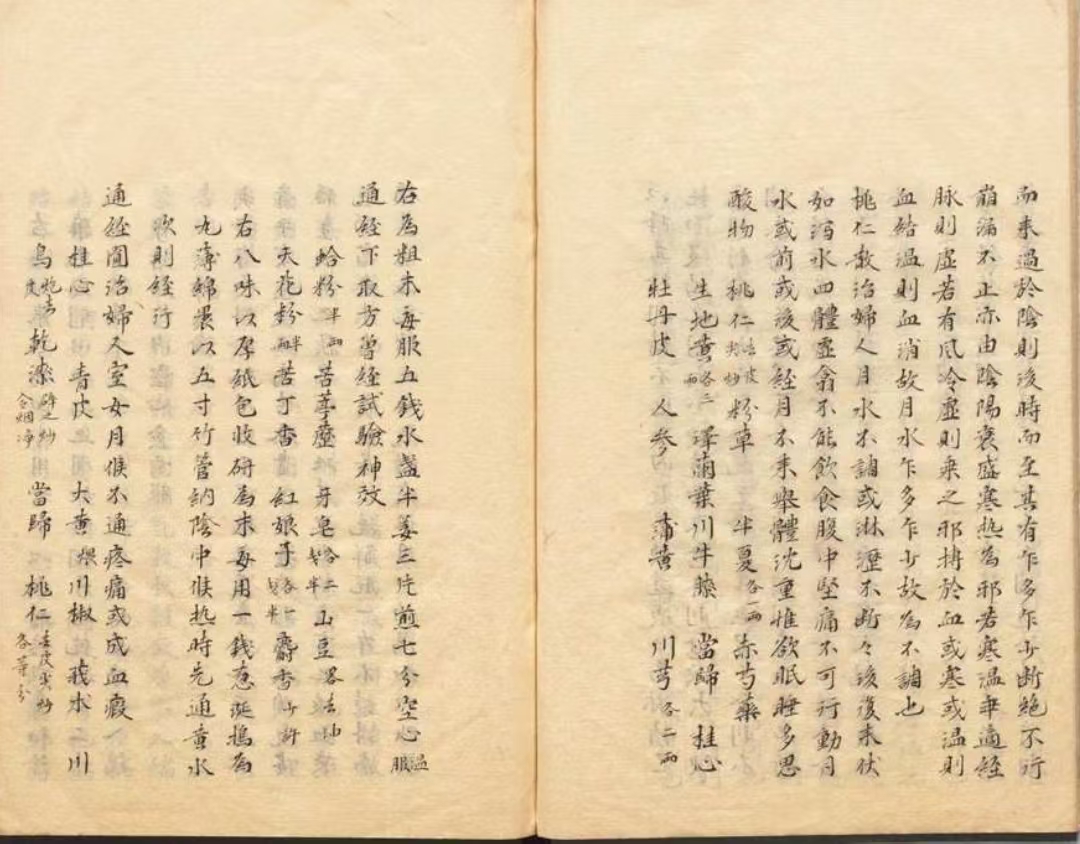 而來過於陰則後時而至其有乍多乍少斷絕不行
崩漏不止亦由陰陽衰盛寒热為邪若寒温乖適經
脉則虛若有風冷虛則乘之邪搏於血或寒或温則
血結温則血消故月水乍多乍少故為不調也
桃仁散治婦人月水不調或淋瀝不断々後復来状
如泻水四體虛翕不能飲食腹中堅痛不可行動月
水或前或後或經月不来舉體沈重惟欲眠睡多思
酸物 桃仁去皮尖炒 粉草 半夏各一兩 赤芍藥
生地黄各三兩 澤蘭葉 川牛膝 當歸 桂心
牡丹皮 人參 蒲黄 川芎各二兩
右為粗末每服五錢水盞半姜三片煎七分空心温服
通經下取方曽經試驗神效
蛤粉半兩 苦葶藶 牙皂各二錢半 山豆畧去油
天花粉半兩 苦丁香 紅娘子各一錢半 麝香少許
右八味以厚紙包收研為末每用一錢葱涎搗為
丸薄綿褁以五寸竹管納陰中候热時先通黄水
次則經行
通經圓治婦人室女月候不通疼痛或成血瘕
桂心 青皮 大黄煨 川椒 莪术 川
烏炮去皮 乾漆碎之炒令烟净 當歸 桃仁去皮尖炒各等分